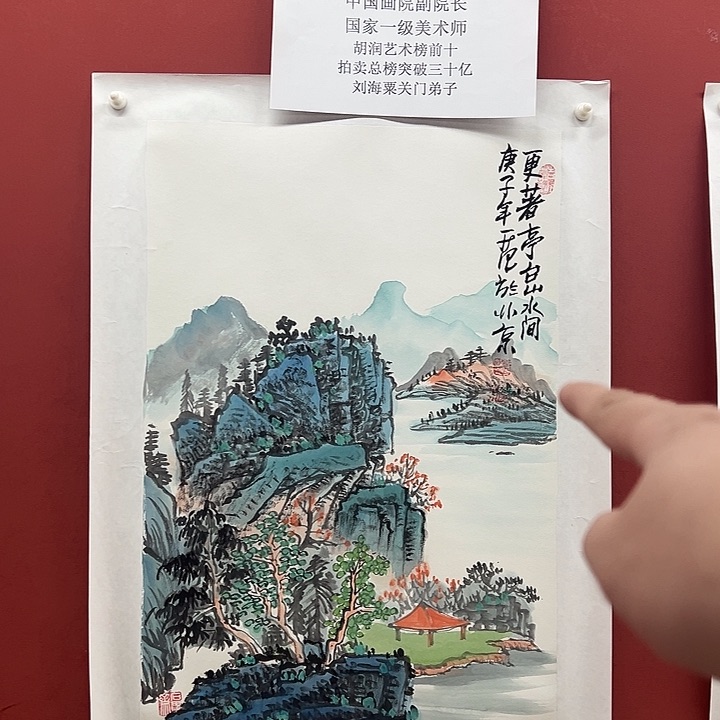 中国画院副院长
国家一级美术师
胡润艺术榜前十
拍卖总榜突破三十亿
刘海粟关门弟子
更著亭台山水间
庚子年
於北京